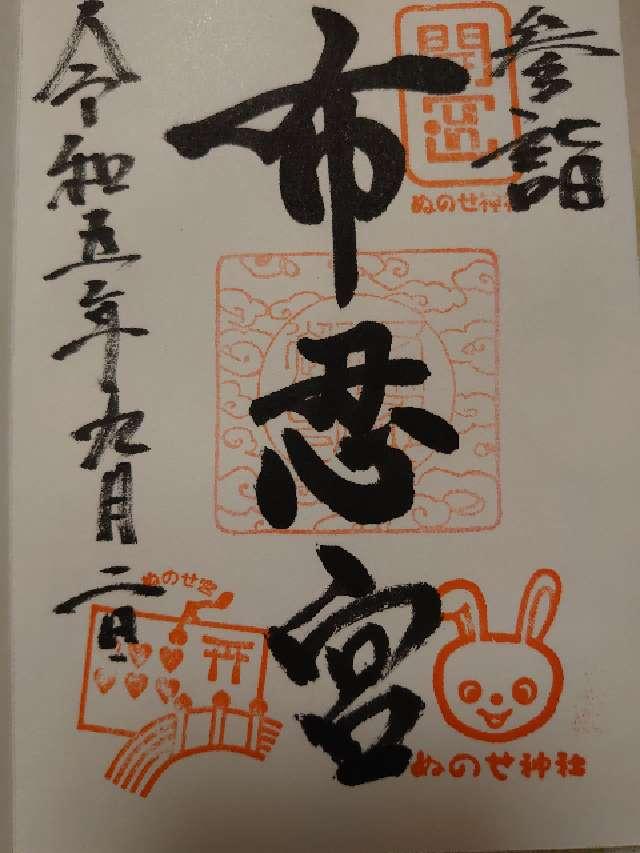 参詣
開運
ぬのせ神社
布忍宮
令和五年九月二日
ぬのせ宮
ぬのせ神社